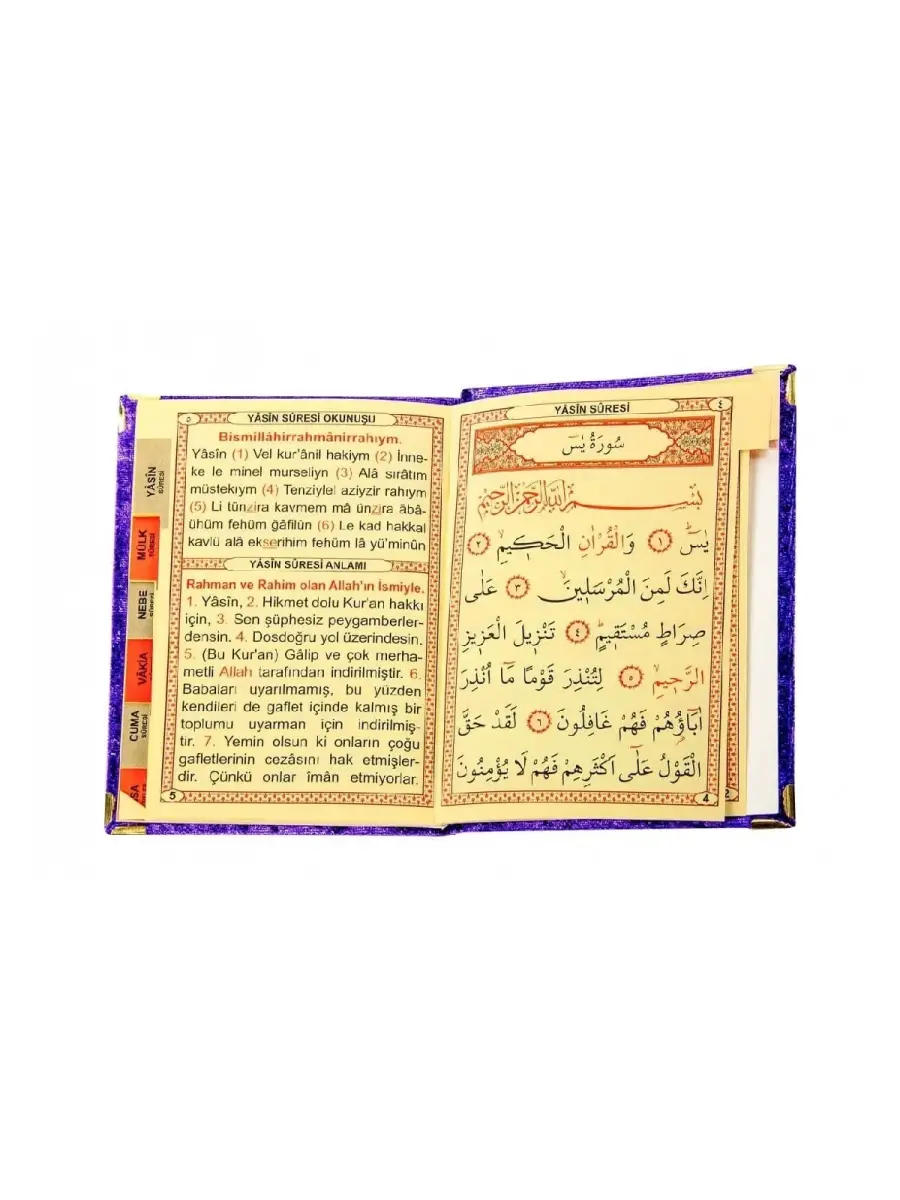 YÂSÎN SÛRESİ
٤
سُورَةُ يٰسٓ
بِسْمِ اللّٰهِ الرَّحْمٰنِ الرَّحٖيمِ
يٰسٓ ١ وَالْقُرْاٰنِ الْحَكٖيمِ ٢
اِنَّكَ لَمِنَ الْمُرْسَلٖينَ ٣ عَلٰى
صِرَاطٍ مُسْتَقٖيمٍ ٤ تَنْزٖيلَ الْعَزٖيزِ
الرَّحٖيمِ ٥ لِتُنْذِرَ قَوْمًا مَٓا اُنْذِرَ
اٰبَٓاؤُ۬هُمْ فَهُمْ غَافِلُونَ ٦ لَقَدْ حَقَّ
الْقَوْلُ عَلٰٓى اَكْثَرِهِمْ فَهُمْ لَا يُؤْمِنُونَ
4
2
٥
YÂSÎN SÛRESİ OKUNUŞU
Bismillâhirrahmânirrahıym.
Yâsîn (1) Vel kur'ânil hakiym (2) İnne-
ke le minel murseliyn (3) Alâ sırâtım
müstekıym (4) Tenziylel aziyzir rahıym
(5) Li tünzira kavmem mâ ünzira âbâ-
ühüm fehüm ğâfilûn (6) Le kad hakkal
kavlü alâ ekserihim fehüm lâ yü'minûn
YÂSÎN SÛRESİ ANLAMI
Rahman ve Rahim olan Allah'ın İsmiyle.
1. Yâsîn, 2. Hikmet dolu Kur'an hakkı
için, 3. Sen şüphesiz peygamberler-
densin. 4. Dosdoğru yol üzerindesin.
5. (Bu Kur'an) Gâlip ve çok merha-
metli Allah tarafından indirilmiştir. 6.
Babaları uyarılmamış, bu yüzden
kendileri de gaflet içinde kalmış bir
toplumu uyarman için indirilmiş-
tir. 7. Yemin olsun ki onların çoğu
gafletlerinin cezasını hak etmişler-
dir. Çünkü onlar îmân etmiyorlar.
5
YÂSÎN
SÛRESİ
MÜLK
SÛRESİ
NEBE
VÂKIA
CUMA
SÛRESİ